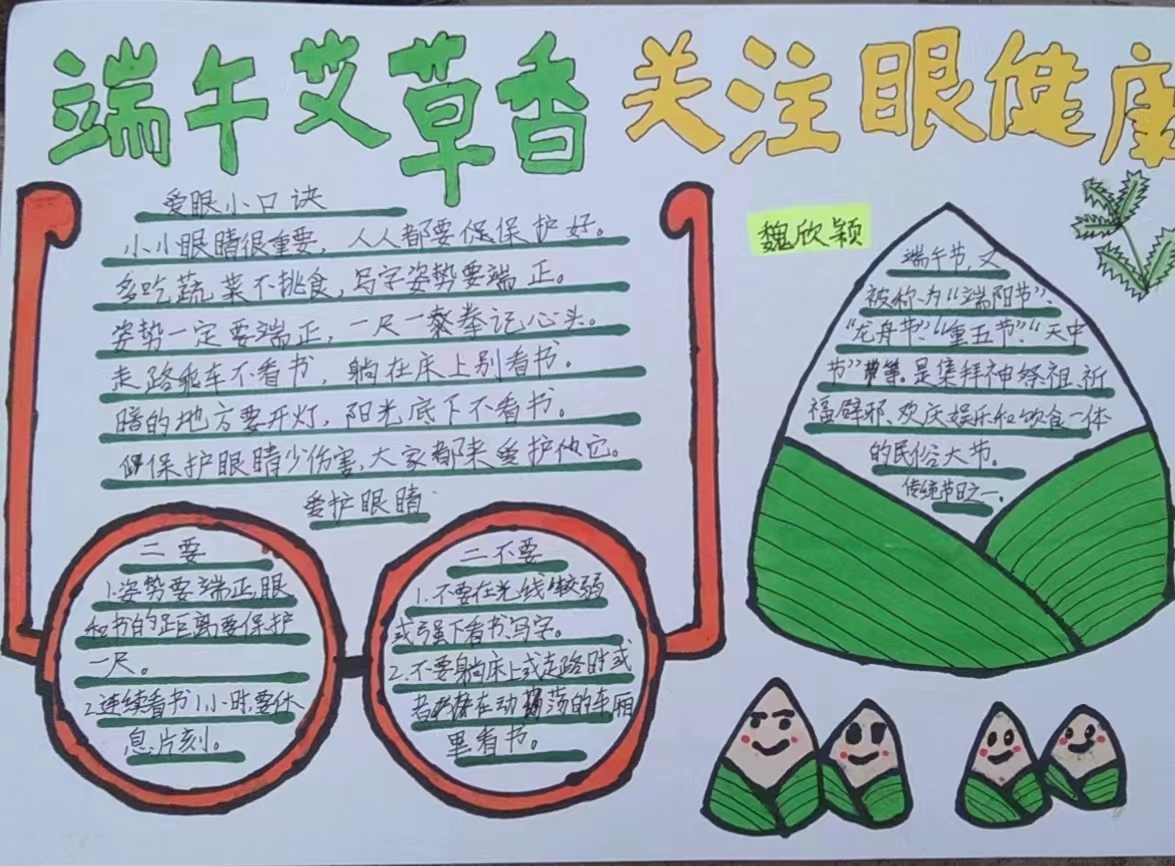 端午艾草香 关注眼健康
爱眼小口诀
小小眼睛很重要，人人都要保护好。
多吃蔬菜不挑食，写字姿势要端正。
姿势一定要端正，一尺一拳记心头。
走路乘车不看书，躺在床上别看书。
暗的地方要开灯，阳光底下不看书。
保护眼睛少伤害，大家都来爱护它。
爱护眼睛
二要
1.姿势要端正，眼
和书的距离要保护
一尺。
2.连续看书1小时要休
息片刻。
二不要
1.不要在光线较弱
或强下看书、写字。
2.不要躺床上或走路时或
者在动荡的车厢
里看书。
魏欣颖
端午节，又
被称为“端阳节”、
“龙舟节”、“重五节”、“天中
节”等。是集拜神祭祖、祈
福辟邪、欢庆娱乐和饮食一体
的民俗大节。
传统节日之一。